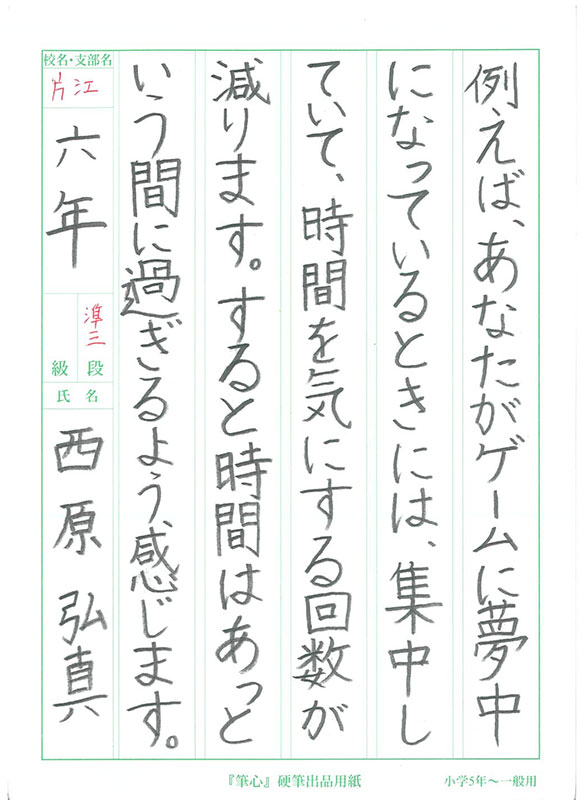 例えば、あなたがゲームに夢中
になっているときには、集中し
ていて、時間を気にする回数が
減ります。すると時間はあっと
いう間に過ぎるよう、感じます。
校名・支部名
片江
六年
準三
段
級
氏名
西原 弘真
『筆心』硬筆出品用紙
小学5年～一般用